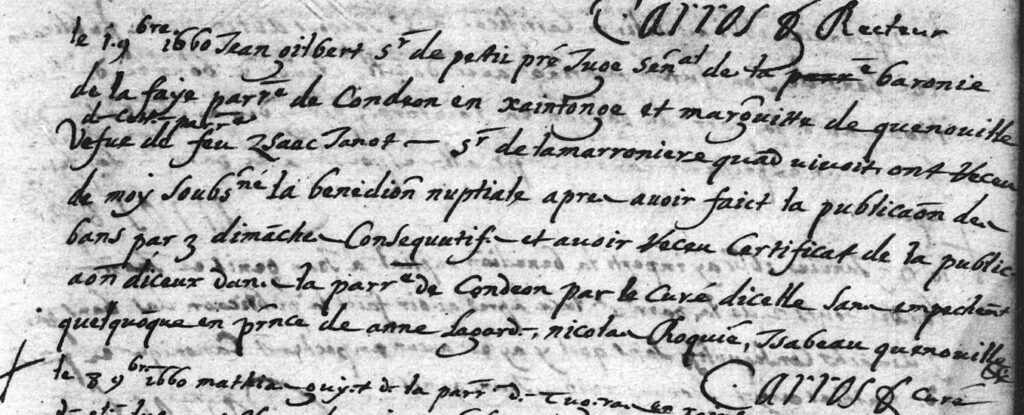 Carros & Recteur
le 19 bre 1660 Jean gilbert Sr de petit pré Juge Senal de la baronie
de la faye parre de Condeon en xaintonge et margueritte de quenouille
de cette parre
Vefue de feu Izaac Janot — Sr de lamarroniere quad vivoit, ont Receu
de moy soubsné la benedion nuptiale apres avoir faict la publicaon des
bans par 3 dimaches Consequutifs et avoir Receu Certificat de la public-
aon diceux dans la parre de Condeon par le Curé dicelle sans empechent
quelquoque en prnce de anne lagarde, nicolas Roquié, Isabeau quenouille &
le 8 9bre 1660 mathias guyet de la parre de
Carros & Curé